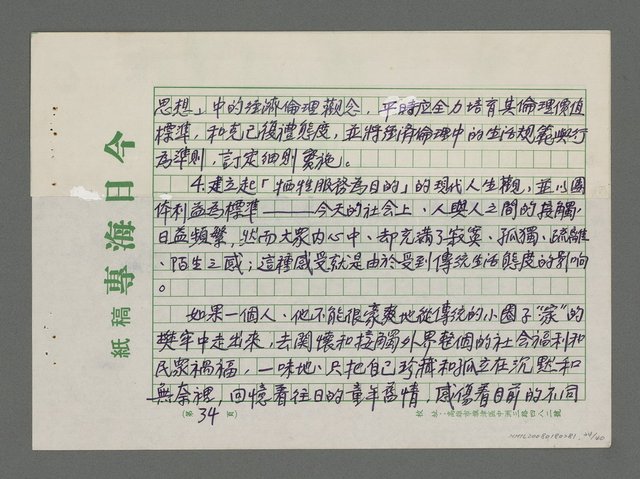 思想」中的經濟倫理觀念，平時应全力培育其倫理價值
標準，和克己復禮態度，並將經濟倫理中的生活規範與行
為準則，訂定細則實施」。
4.建立起「牺牲服務為目的」的現代人生觀，並以團
体利益為標準———今天的社会上、人與人之間的接觸，
日益頻繁，然而大眾内心中、却充滿了寂寞、孤獨、疏離
、陌生之感；這種感受就是由於受到傳統生活態度的影响
。
如果一個人、他不能很豪爽地從傳統的小圈子“家”的
樊牢中走出來，去関懷和接觸外界整個的社会福利和
民眾禍福，一味地、只把自己珍藏和孤立在沉默和
無奈裡，回憶着往日的童年舊情，感傷着目前的不同
（第34頁）
今日海專
稿紙
NMTL20080180281